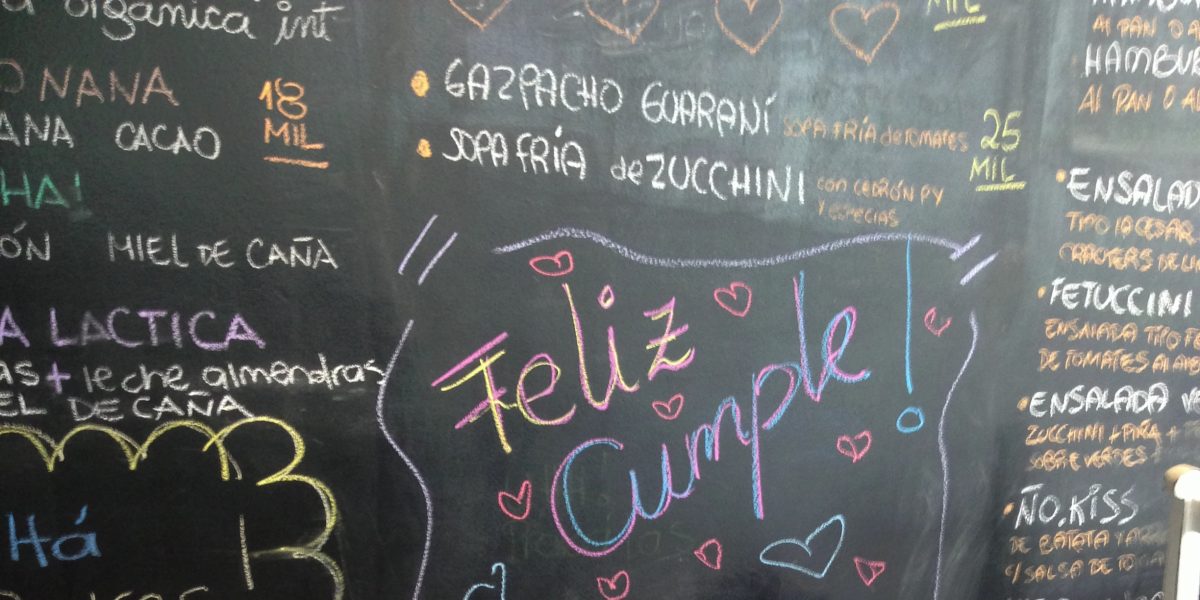 orgánica int
NANA
18
MIL
ANA CACAO
HA!
ÓN MIEL DE CAÑA
A LACTICA
as + leche almendras
EL DE CAÑA
Há
MIL
GAZPACHO GUARANÍ SOPA FRÍA de TOMATES
SOPA FRÍA de ZUCCHINI con CEDRÓN PY
Y ESPECIAS
25
MIL
Feliz
Cumple!
AL PAN O A
HAMBUR
AL PAN O AL
ENSALAD
TIPO
FETUCCINI
ENSALADA TIPO FE
DE TOMATES
ENSALADA V
ZUCCHINI + PIÑA +
SOBRE VERDES
ÑO.KISS
DE BATATA Y
C/SALSA DE TO